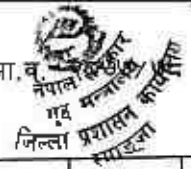 आ.व.
नेपाल सरकार
गृह मन्त्रालय
जिल्ला प्रशासन कार्यालय
स्याङ्जा